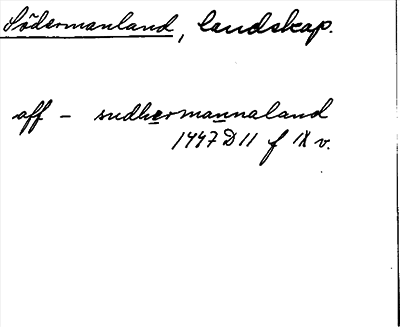 Södermanland, landskap.
aff – sudhermannaland
1447 D 11 f IX v.